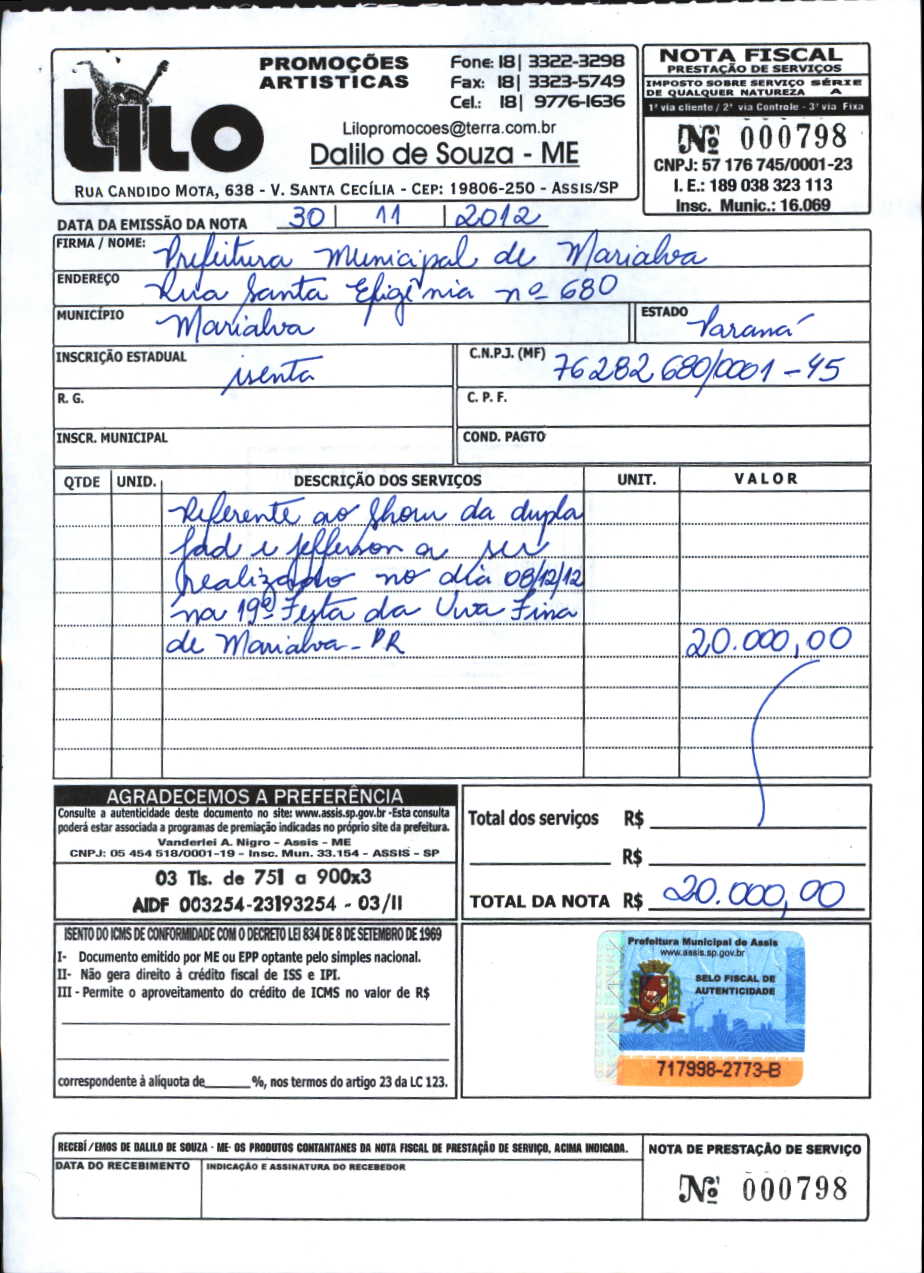 LILO
PROMOÇÕES
ARTISTICAS
Fone: 18| 3322-3298
Fax: 18| 3323-5749
Cel.: 18| 9776-1636
Lilopromocoes@terra.com.br
Dalilo de Souza - ME
RUA CANDIDO MOTA, 638 - V. SANTA CECÍLIA - CEP: 19806-250 - ASSIS/SP
NOTA FISCAL
PRESTAÇÃO DE SERVIÇOS
IMPOSTO SOBRE SERVIÇO SÉRIE
DE QUALQUER NATUREZA A
1ª via cliente / 2ª via Controle - 3ª via Fixa
Nº 000798
CNPJ: 57 176 745/0001-23
I. E.: 189 038 323 113
Insc. Munic.: 16.069
DATA DA EMISSÃO DA NOTA 30 | 11 | 2012
FIRMA / NOME: Prefeitura Municipal de Marialva
ENDEREÇO Rua Santa Efigênia nº 680
MUNICÍPIO Marialva ESTADO Paraná
INSCRIÇÃO ESTADUAL isenta C.N.P.J. (MF) 76282680/0001-45
R. G. C. P. F.
INSCR. MUNICIPAL COND. PAGTO
QTDE UNID. DESCRIÇÃO DOS SERVIÇOS UNIT. VALOR
Referente ao Show da dupla
Jad e Jefferson a ser
realizado no dia 08/12/12
na 19ª Festa da Uva Fina
de Marialva - PR 20.000,00
AGRADECEMOS A PREFERÊNCIA
Consulte a autenticidade deste documento no site: www.assis.sp.gov.br -Esta consulta
poderá estar associada a programas de premiação indicadas no próprio site da prefeitura.
Vanderlei A. Nigro - Assis - ME
CNPJ: 05 454 518/0001-19 - Insc. Mun. 33.154 - ASSIS - SP
03 Tls. de 751 a 900x3
AIDF 003254-23193254 - 03/11
Total dos serviços R$
R$
TOTAL DA NOTA R$ 20.000,00
ISENTO DO ICMS DE CONFORMIDADE COM O DECRETO LEI 834 DE 8 DE SETEMBRO DE 1969
I- Documento emitido por ME ou EPP optante pelo simples nacional.
II- Não gera direito à crédito fiscal de ISS e IPI.
III - Permite o aproveitamento do crédito de ICMS no valor de R$
correspondente à alíquota de______%, nos termos do artigo 23 da LC 123.
Prefeitura Municipal de Assis
www.assis.sp.gov.br
SELO FISCAL DE
AUTENTICIDADE
717998-2773-B
RECEBÍ / EMOS DE DALILO DE SOUZA - ME- OS PRODUTOS CONTANTANES DA NOTA FISCAL DE PRESTAÇÃO DE SERVIÇO, ACIMA INDICADA.
DATA DO RECEBIMENTO INDICAÇÃO E ASSINATURA DO RECEBEDOR
NOTA DE PRESTAÇÃO DE SERVIÇO
Nº 000798